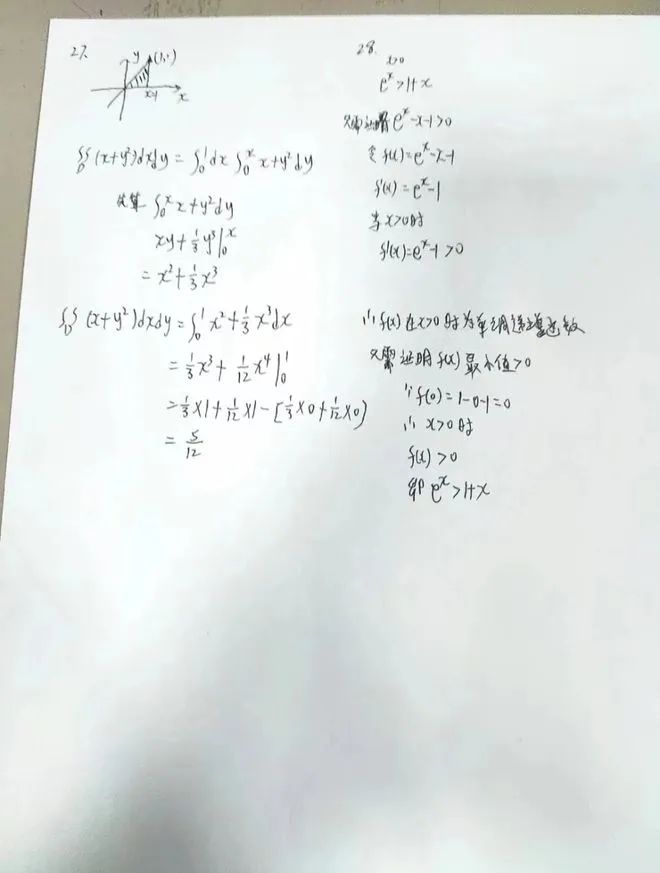 27.
y
(1,1)
x=1
x
∬D (x+y²)dxdy = ∫₀¹dx ∫₀ˣ x+y²dy
先算 ∫₀ˣ x+y²dy
xy+⅓y³|₀ˣ
= x²+⅓x³
∬D (x+y²)dxdy = ∫₀¹ x²+⅓x³dx
= ⅓x³ + 1/12 x⁴|₀¹
= ⅓×1+1/12×1-[⅓×0+1/12×0)
= 5/12
28.
x>0
eˣ>1+x
只需证明 eˣ-x-1>0
令 f(x)=eˣ-x-1
f'(x)=eˣ-1
当x>0时
f'(x)=eˣ-1>0
∴ f(x) 在x>0时为单调递增函数
只需证明f(x)最小值>0
∵ f(0)=1-0-1=0
∴ x>0时
f(x)>0
即 eˣ>1+x